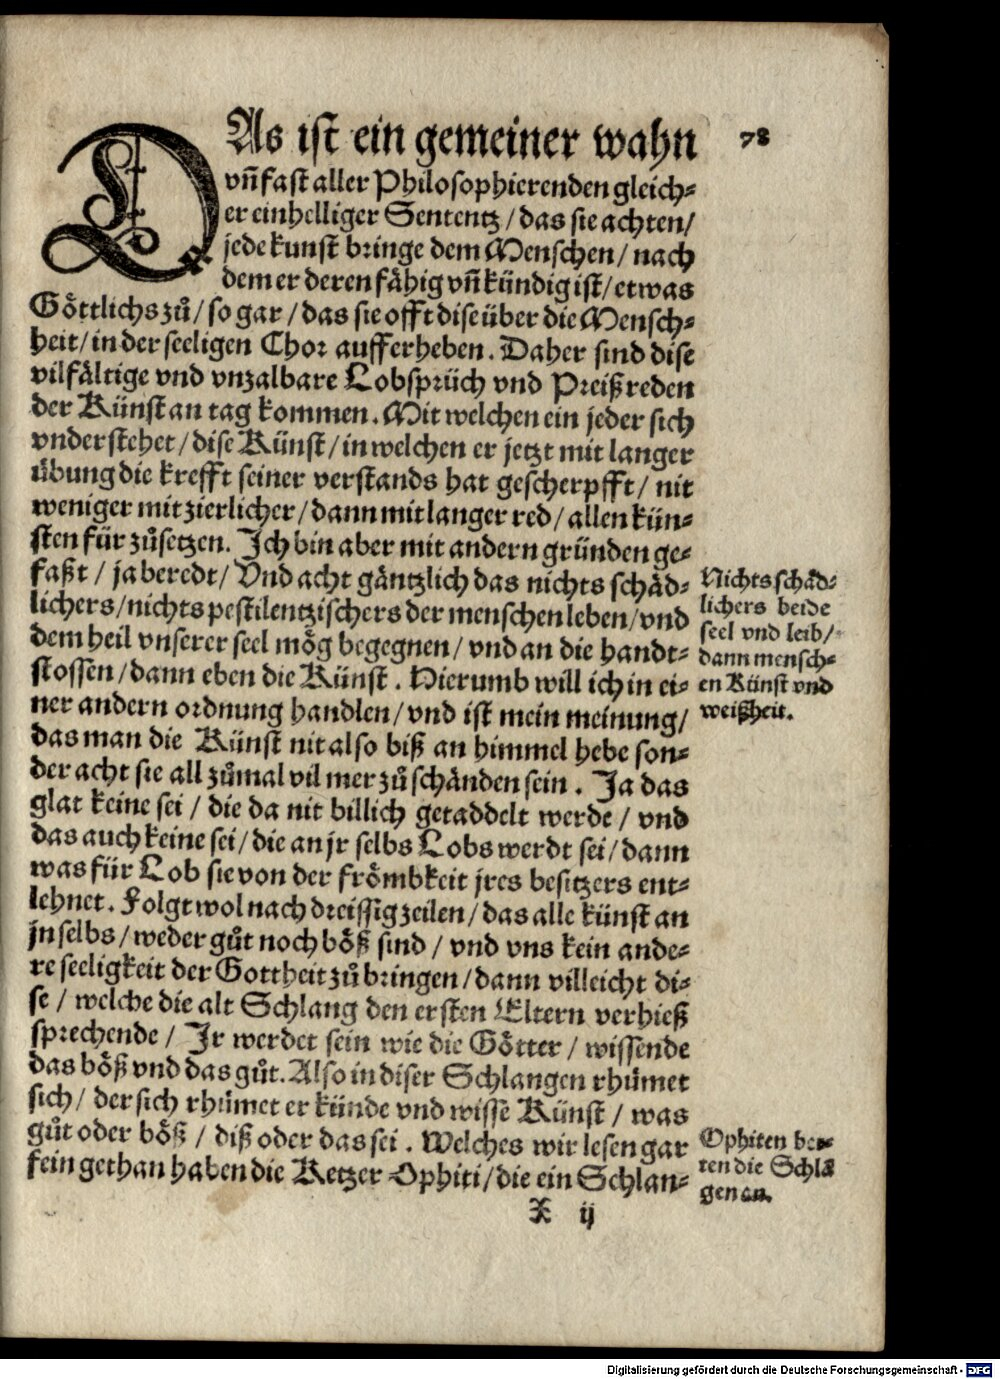 DAs ist ein gemeiner wahn
78
vñ fast aller Philosophierenden gleich⸗
er einhelliger Sententz / das sie achten /
jede kunst bringe dem Menschen / nach
dem er deren fähig vñ kündig ist / etwas
Göttlichs zů / so gar / das sie offt dise über die Mensch⸗
heit / in der seeligen Chor aufferheben. Daher sind dise
vilfältige vnd vnzalbare Lobsprüch vnd Preißreden
der Künst an tag kommen. Mit welchen ein jeder sich
vnderstehet / dise Künst / in welchen er jetzt mit langer
übung die krefft seiner verstands hat gescherpfft / nit
weniger mit zierlicher / dann mit langer red / allen kün⸗
sten für zůsetzen. Ich bin aber mit andern gründen ge⸗
faßt / ja beredt / Vnd acht gäntzlich das nichts schäd⸗
lichers / nichts pestilentzischers der menschen leben / vnd
dem heil vnserer seel mög begegnen / vnd an die handt⸗
stossen / dann eben die Künst. Hierumb will ich in ei⸗
ner andern ordnung handlen / vnd ist mein meinung /
das man die Künst nit also biß an himmel hebe son⸗
der acht sie all zůmal vil mer zů schänden sein. Ja das
glat keine sei / die da nit billich getaddelt werde / vnd
das auch keine sei / die an jr selbs Lobs werdt sei / dann
was für Lob sie von der frömbkeit jres besitzers ent⸗
lehnet. Folgt wol nach dreissig zeilen / das alle künst an
jn selbs / weder gůt noch böß sind / vnd vns kein ande⸗
re seeligkeit der Gottheit zů bringen / dann villeicht di⸗
se / welche die alt Schlang den ersten Eltern verhieß
sprechende / Ir werdet sein wie die Götter / wissende
das böß vnd das gůt. Also in diser Schlangen rhümet
sich / der sich rhümet er künde vnd wisse Künst / was
gůt oder böß / diß oder das sei. Welches wir lesen gar
fein gethan haben die Ketzer Ophiti / die ein Schlan⸗
X ij
Nichts schäd⸗
lichers beide
seel vnd leib /
dann mensch⸗
en Künst vnd
weißheit.
Ophiten bet⸗
ten die Schlã
gen an.
Digitalisierung gefördert durch die Deutsche Forschungsgemeinschaft - DFG